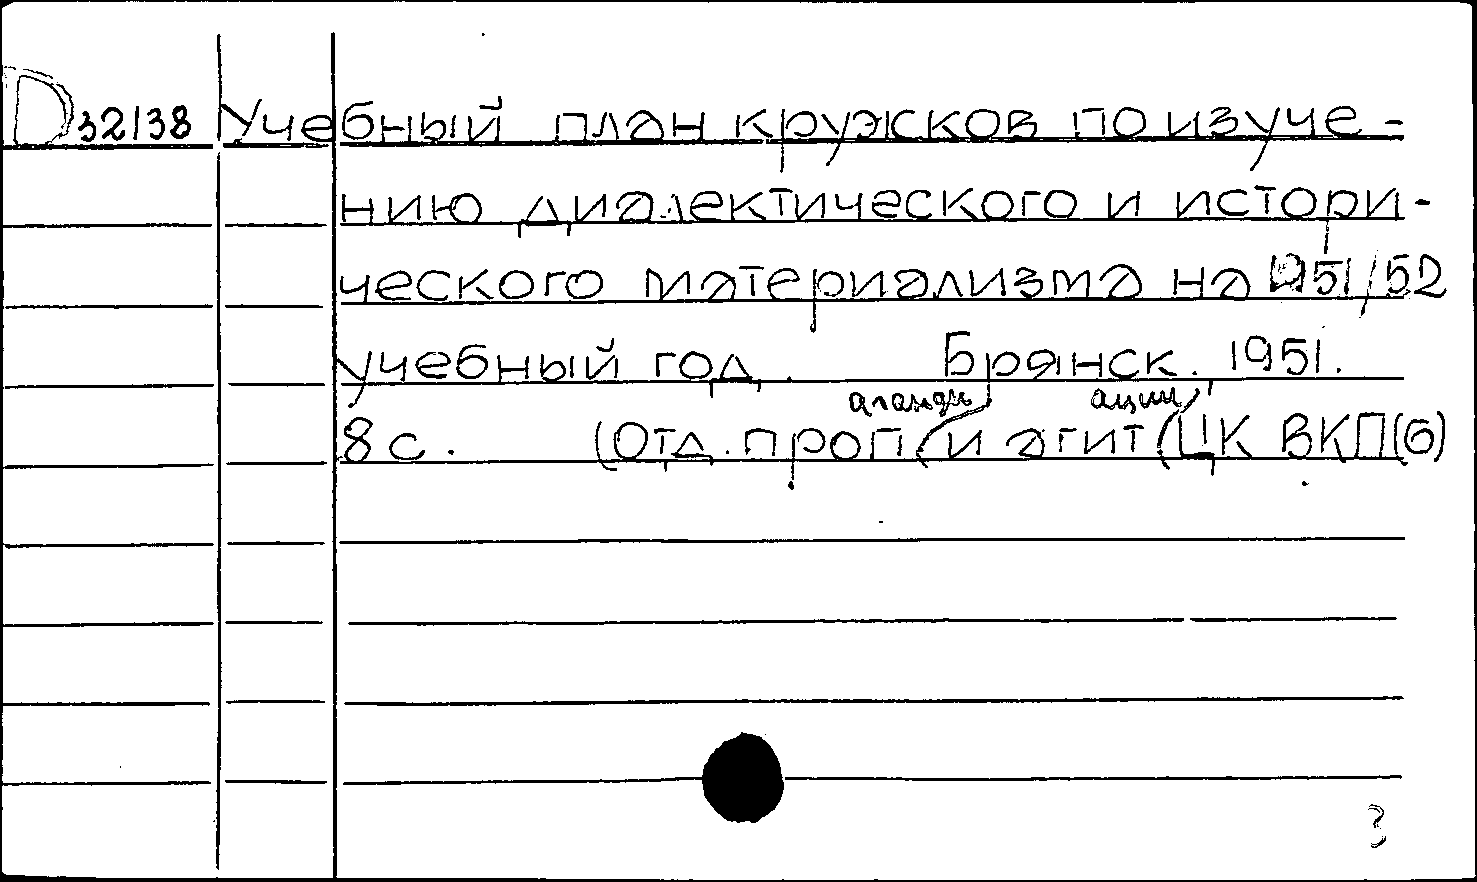 D 32138 Учебный план кружков по изуче-
нию диалектического и истори-
ческого материализма на 1951/52
учебный год. Брянск. 1951.
аганды ации
8 с. (Отд. проп и агит ЦК ВКП(б)
3